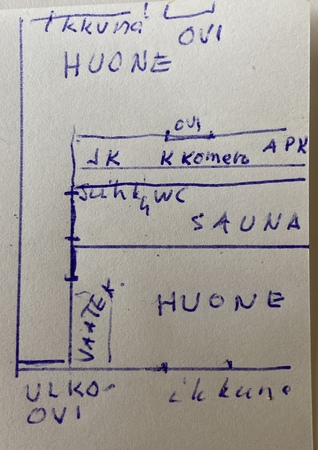 Ikkuna
OVI
HUONE
OVI
JK K Komero APK
Suihk WC
SAUNA
VAATEK.
HUONE
ULKO-
OVI
ikkuna